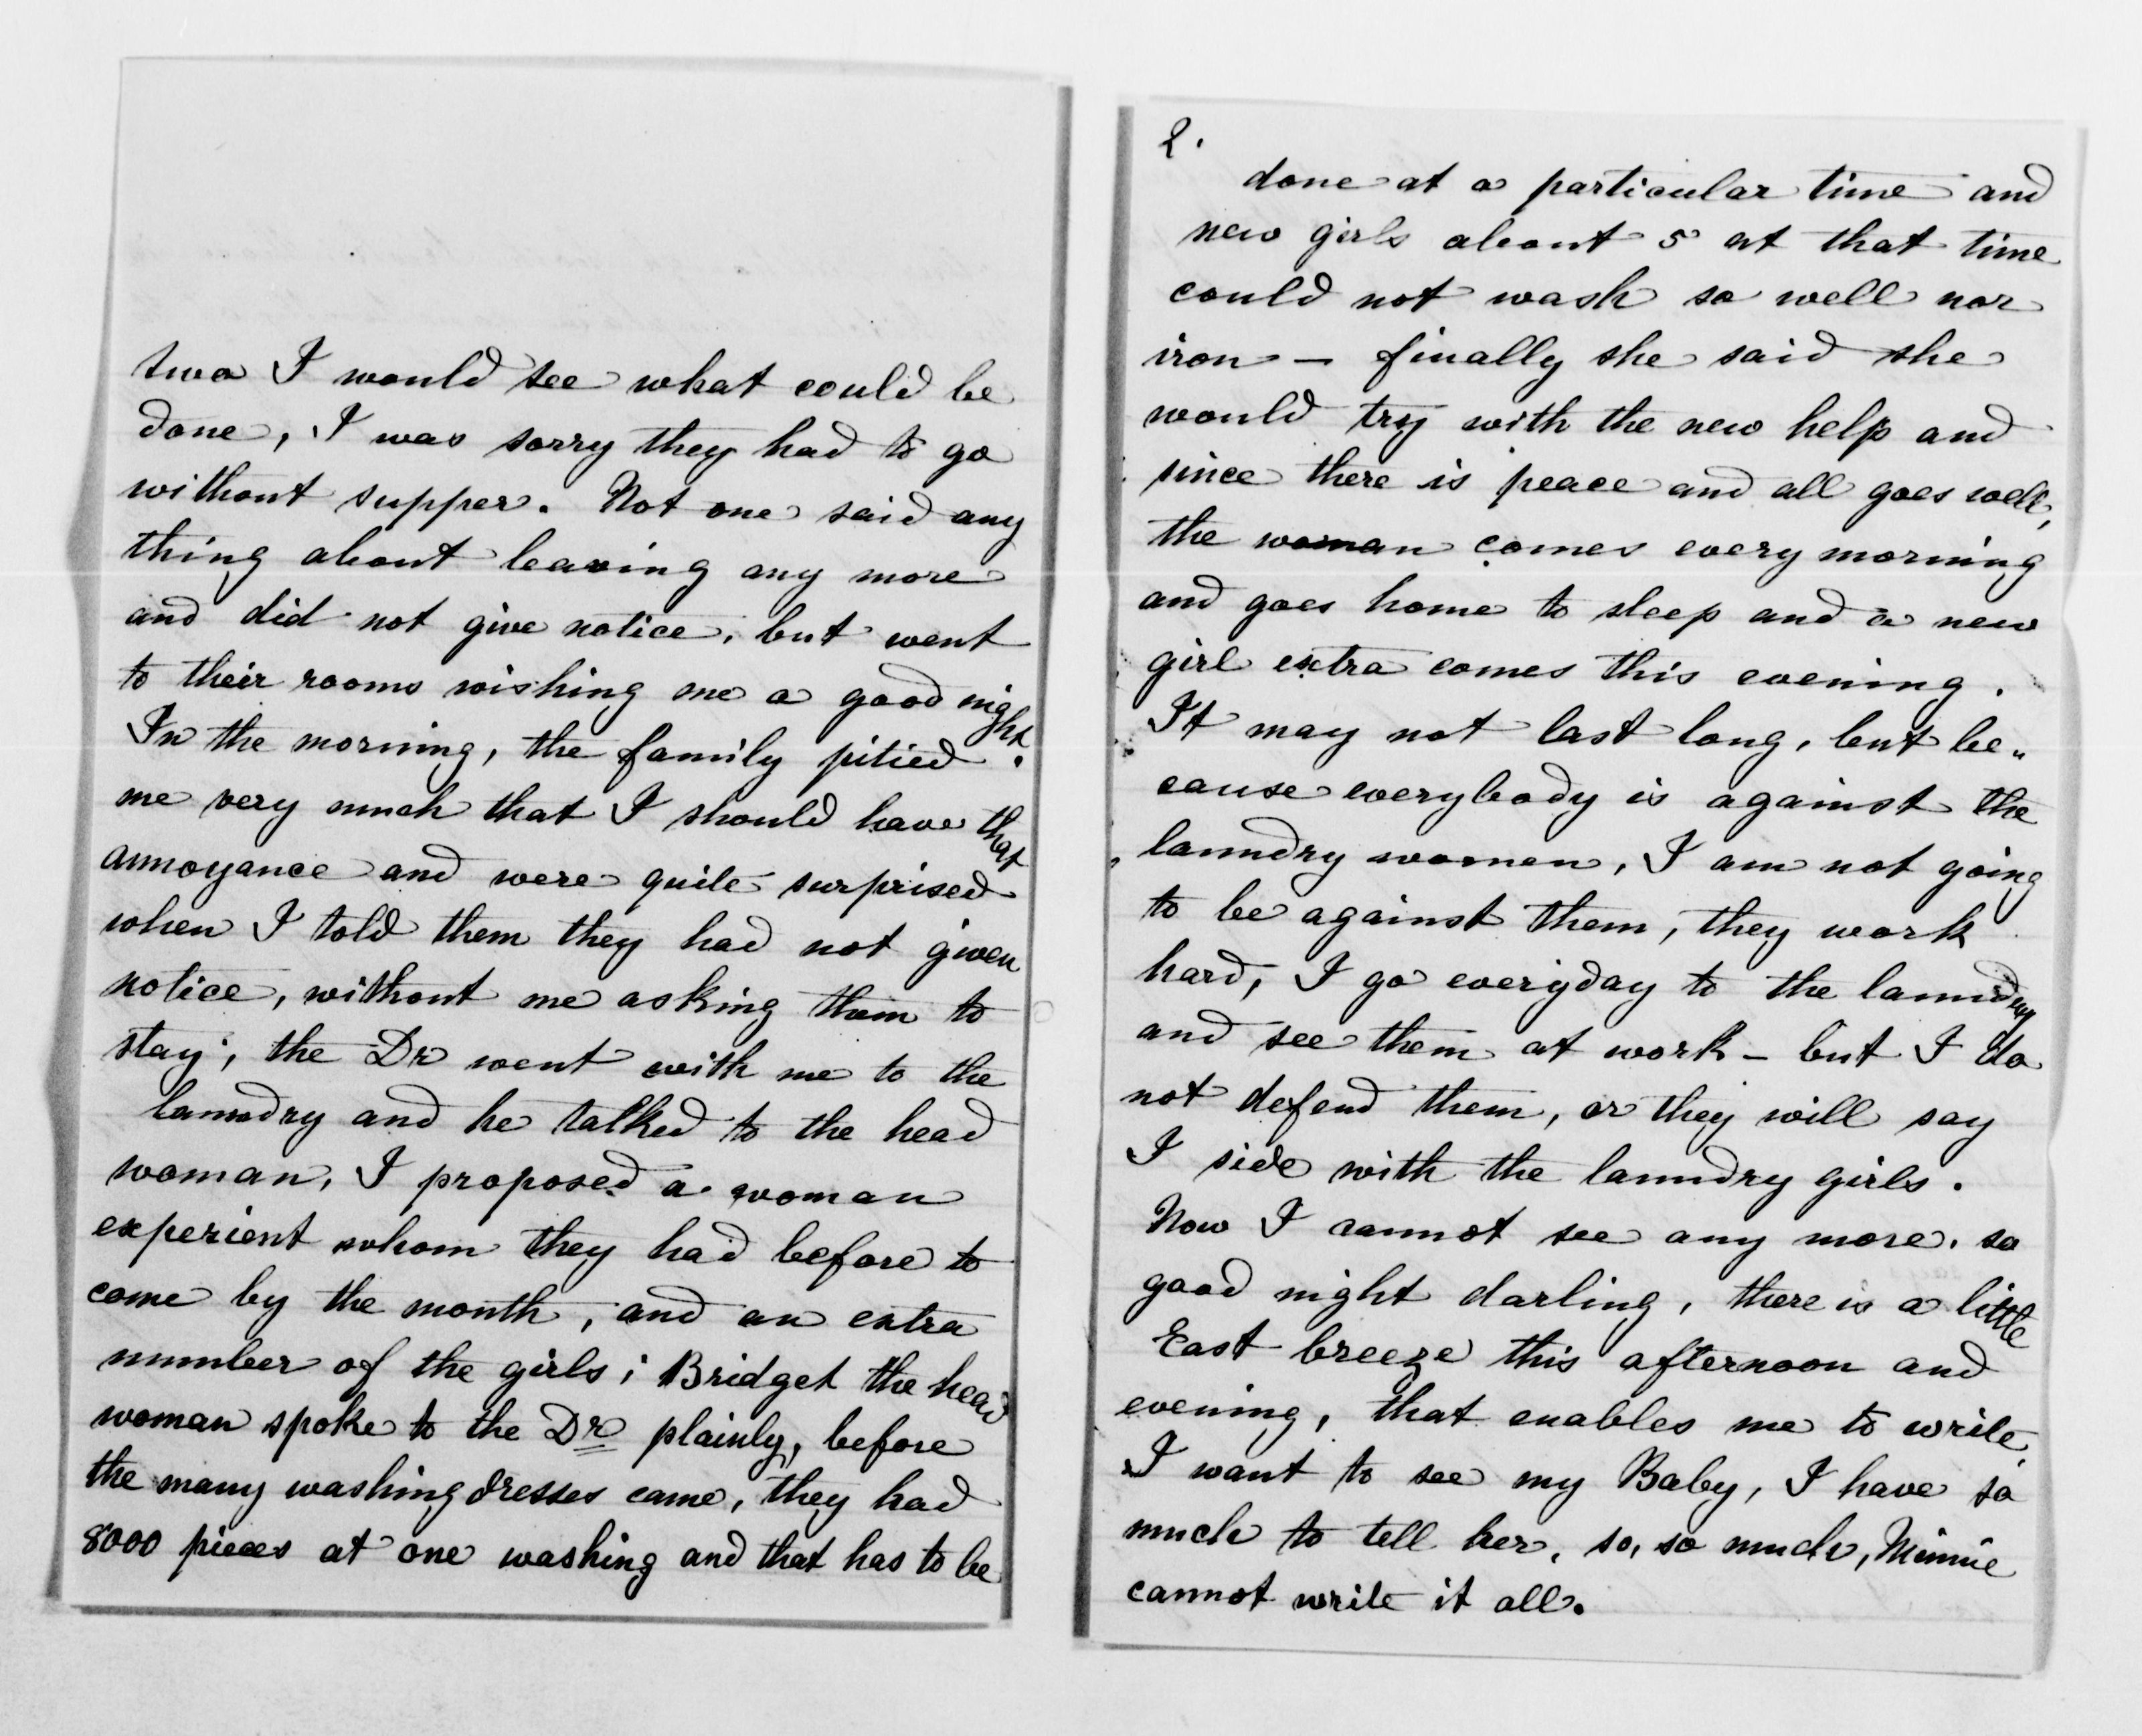 two I would see what could be
done, I was sorry they had to go
without supper. Not one said any
thing about leaving any more
and did not give notice, but went
to their rooms wishing me a good night.
In the morning, the family pitied
me very much that I should have that
annoyance and were quite surprised
when I told them they had not given
notice, without me asking them to
stay; the Dr went with me to the
laundry and he talked to the head
woman, I proposed a woman
experient whom they had before to
come by the month, and an extra
number of the girls; Bridget the head
woman spoke to the Dr plainly, before
the many washing dresses came, they had
8000 pieces at one washing and that has to be
2.
done at a particular time and
new girls about 5 at that time
could not wash so well nor
iron — finally she said she
would try with the new help and
since there is peace and all goes well,
the woman comes every morning
and goes home to sleep and a new
girl extra comes this evening.
It may not last long, but be„
cause everybody is against the
laundry women, I am not going
to be against them, they work
hard, I go everyday to the laundry
and see them at work — but I do
not defend them, or they will say
I side with the laundry girls.
Now I cannot see any more, so
good night darling, there is a little
East breeze this afternoon and
evening, that enables me to write,
I want to see my Baby, I have so
much to tell her, so, so much, Minnie
cannot write it all.